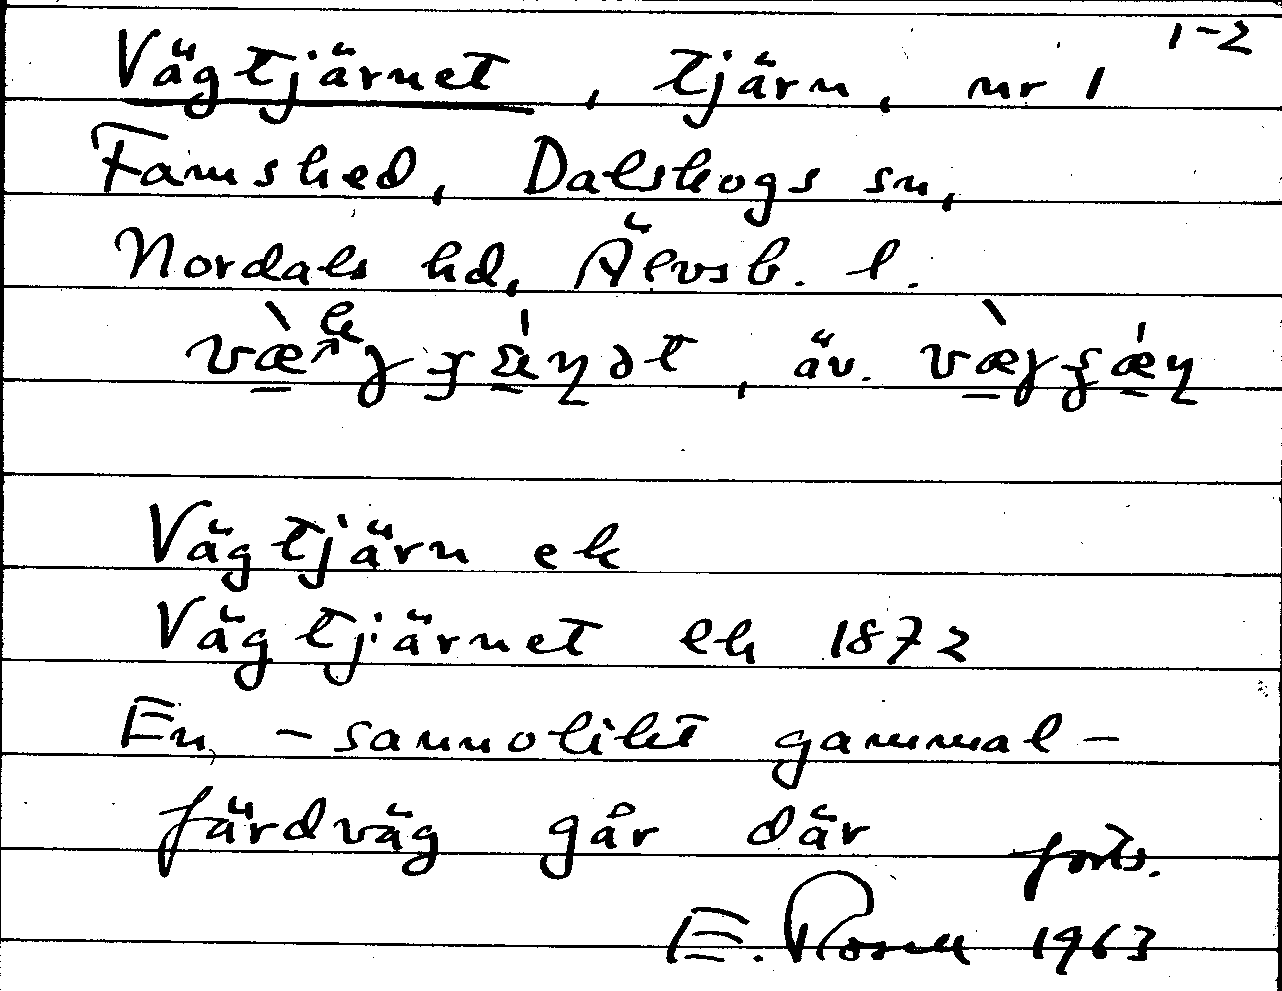 1-2
Vägtjärnet, tjärn, nr 1
Famshed, Dalskogs sn,
Nordals hd, Älvsb. l.
, äv.
Vägtjärn ek
Vägtjärnet ek 1872
En - sannolikt gammal -
färdväg går där forts.
E. Rosell 1963